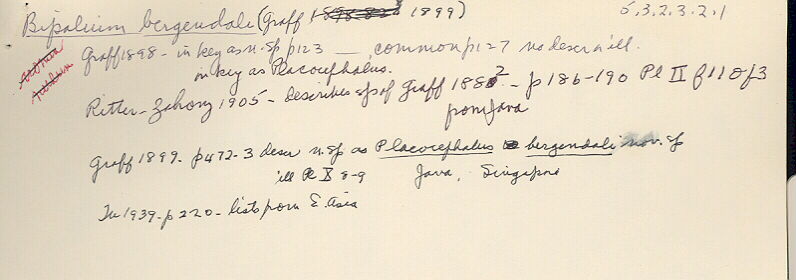 Bipalium bergendali (Graff 1899) 5,3,2,3,2,1
Graff 1898 - in key as n. sp p123 — common p127 no descr n ill.
in key as Placocephalus.
Ritter-Zahony 1905 - describes sp of Graff 1882 - p186-190 Pl II f11
from Java
Graff 1899 - p472-3 descr n. sp as Placocephalus bergendali nov. sp
ill Pl X 8-9 Java, Singapore
Fu 1939 - p220 - lists from E. Asia